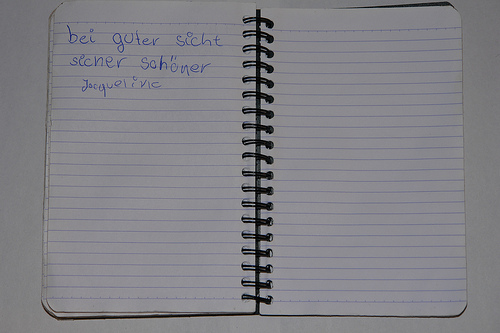 bei guter sicht
sicher schöner
Jacqueline